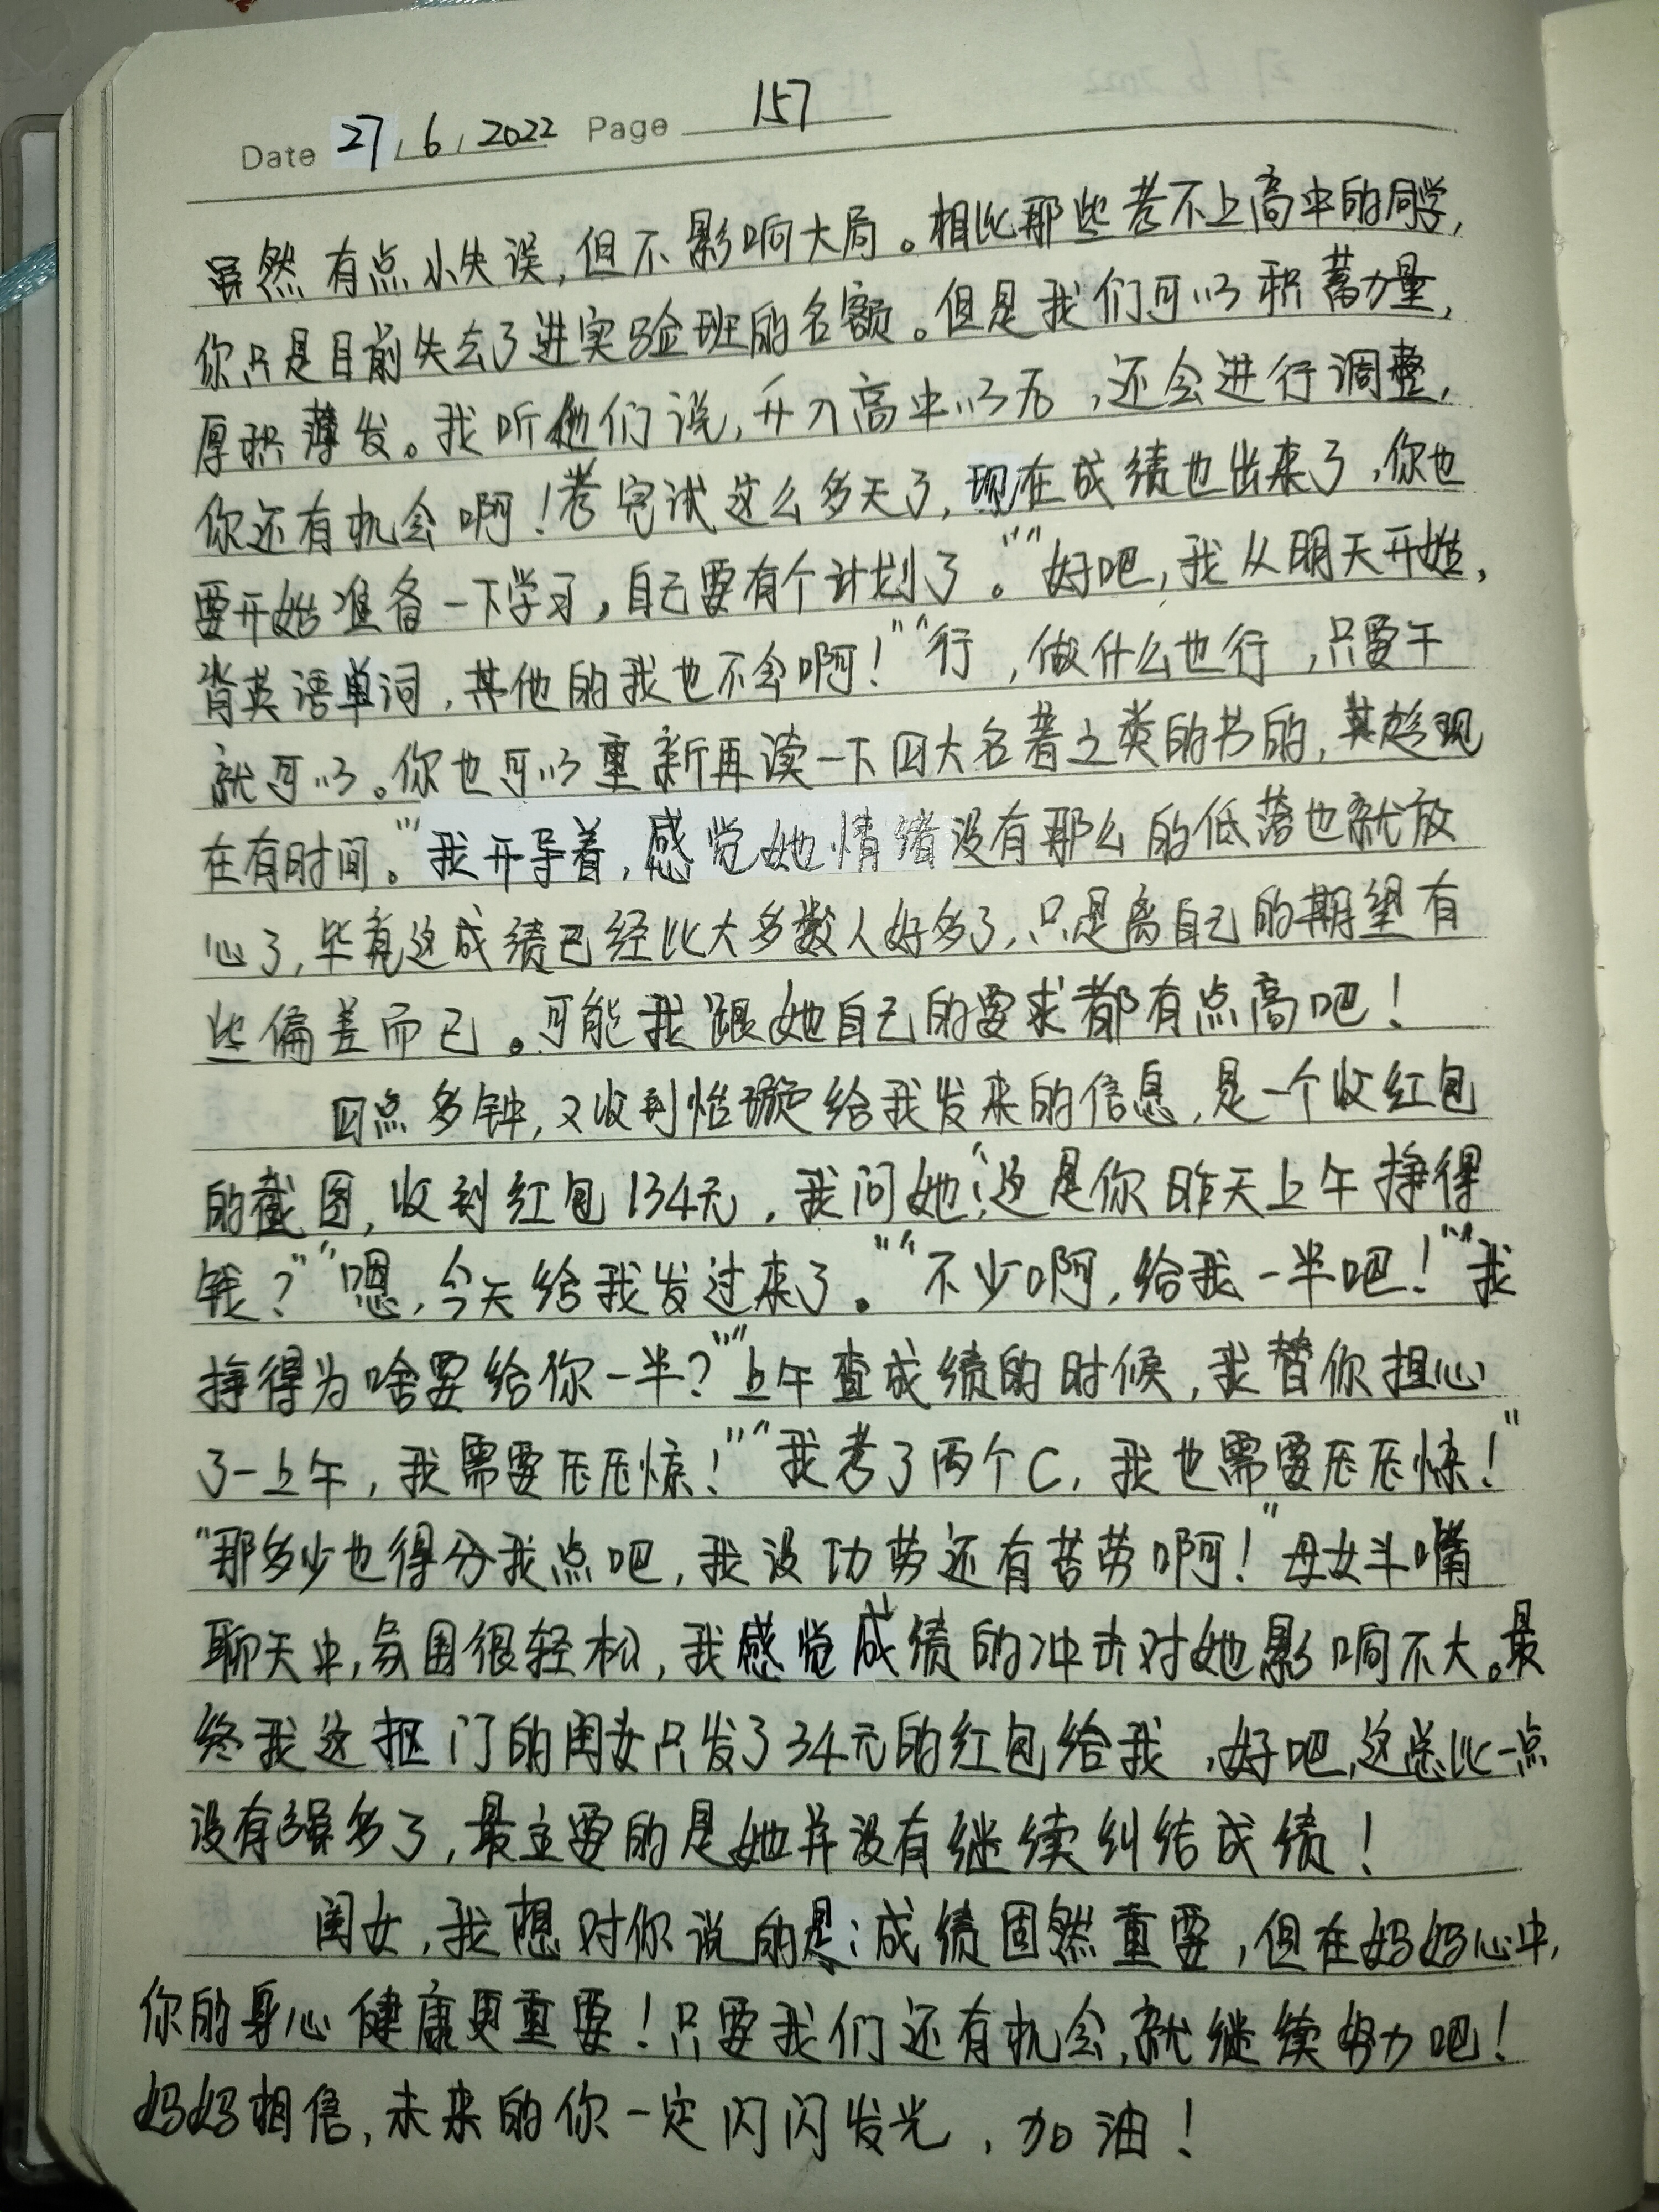 Date 27 / 6 / 2022 Page 157
虽然有点小失误,但不影响大局。相比那些考不上高中的同学,
你只是目前失去了进实验班的名额。但是我们可以积蓄力量,
厚积薄发。我听他们说,升入高中以后,还会进行调整,
你还有机会啊!考完试这么多天了,现在成绩也出来了,你也
要开始准备一下学习,自己要有个计划了。”“好吧,我从明天开始,
背英语单词,其他的我也不会啊!”“行,做什么也行,只要干
就可以。你也可以重新再读一下四大名著之类的书的,其趁现
在有时间。”我开导着,感觉她情绪没有那么的低落也就放
心了,毕竟这成绩已经比大多数人好多了,只是离自己的期望有
些偏差而已。可能我跟她自己的要求都有点高吧!
四点多钟,又收到怡璇给我发来的信息,是一个收红包
的截图,收到红包134元,我问她:“这是你昨天上午挣得
钱?”“嗯,今天给我发过来了。”“不少啊,给我一半吧!”“我
挣得为啥要给你一半?”“上午查成绩的时候,我替你担心
了一上午,我需要压压惊!”“我考了两个C,我也需要压压惊!”
“那多少也得分我点吧,我没功劳还有苦劳啊!”母女斗嘴
聊天中,氛围很轻松,我感觉成绩的冲击对她影响不大。最
终我这抠门的闺女只发了34元的红包给我,好吧,这总比一点
没有强多了,最主要的是她并没有继续纠结成绩!
闺女,我想对你说的是:成绩固然重要,但在妈妈心中,
你的身心健康更重要!只要我们还有机会,就继续努力吧!
妈妈相信,未来的你一定闪闪发光,加油!